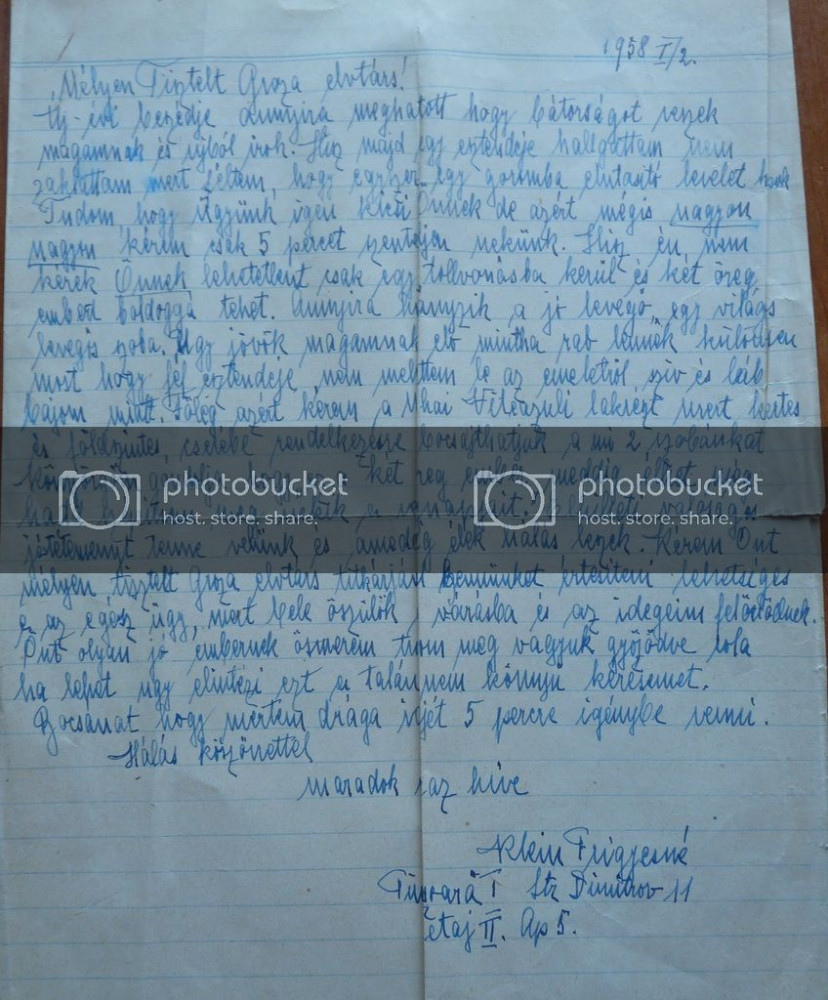 1958 I/2.
Mélyen Tisztelt Groza elvtárs!
Uj-évi beszédje annyira meghatott hogy bátorságot veszek
magamnak és ujból irok. Hisz majd egy esztendeje hallgattam nem
zaklattam mert féltem, hogy egyszer egy goromba elutasitó levelet
Tudom, hogy Ügyünk igen kicsi Önnek de azért mégis nagyon
nagyon kérem csak 5 percet szenteljen nekünk. Hisz én nem
kérek Önnek lehetetlent csak egy tollvonásba kerül és két öreg
embert boldoggá tehet. Annyira hiányzik a jó levegő, egy világos
levegős szoba. Ugy jövök magamnak elő mintha rab lennék különösen
most hogy fél esztendeje nem mentem le az emeletről sziv és láb
bajom miatt. Főleg azért kérem a Mihai Viteazuli lakrészt mert kertes
és földszintes, cserébe rendelkezésre bocsájthatjuk a mi 2 szobánkat
két öreg ember meddig élhet még
jótéteményt tenne velünk és ameddig élek hálás leszek. Kérem Önt
mélyen tisztelt Groza elvtárs titkárján bennünket értesiteni lehetséges
e az egész ügy, mert bele őszülök a várásba és az idegeim felőrlődnek.
Önt olyan jó embernek ösmerem meg vagyunk győződve rola
ha lehet ugy elintézi ezt a talán nem könnyü kérésemet.
Bocsánat hogy mertem drága idejét 5 percre igénybe venni.
Hálás köszönettel
maradok az hive
Klein Frigyesné
Timisoara I Str Dimitrov 11
etaj II. Ap 5.
photobucket
host. store. share.
photobucket
host. store. share.